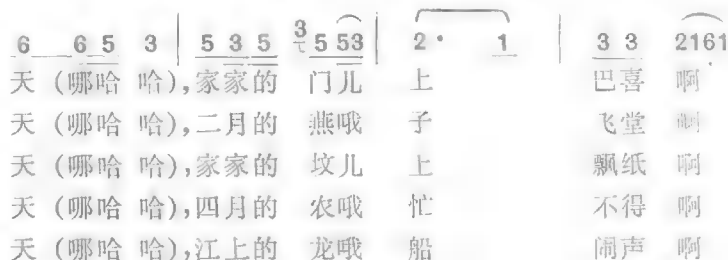 6 6 5 3 | 5 3 5 3 5 53 | 2· 1 | 3 3 2161
天 (哪哈 哈),家家的 门儿 上 巴喜 啊
天 (哪哈 哈),二月的 燕哦 子 飞堂 啊
天 (哪哈 哈),家家的 坟儿 上 飘纸 啊
天 (哪哈 哈),四月的 农哦 忙 不得 啊
天 (哪哈 哈),江上的 龙哦 船 闹声 啊